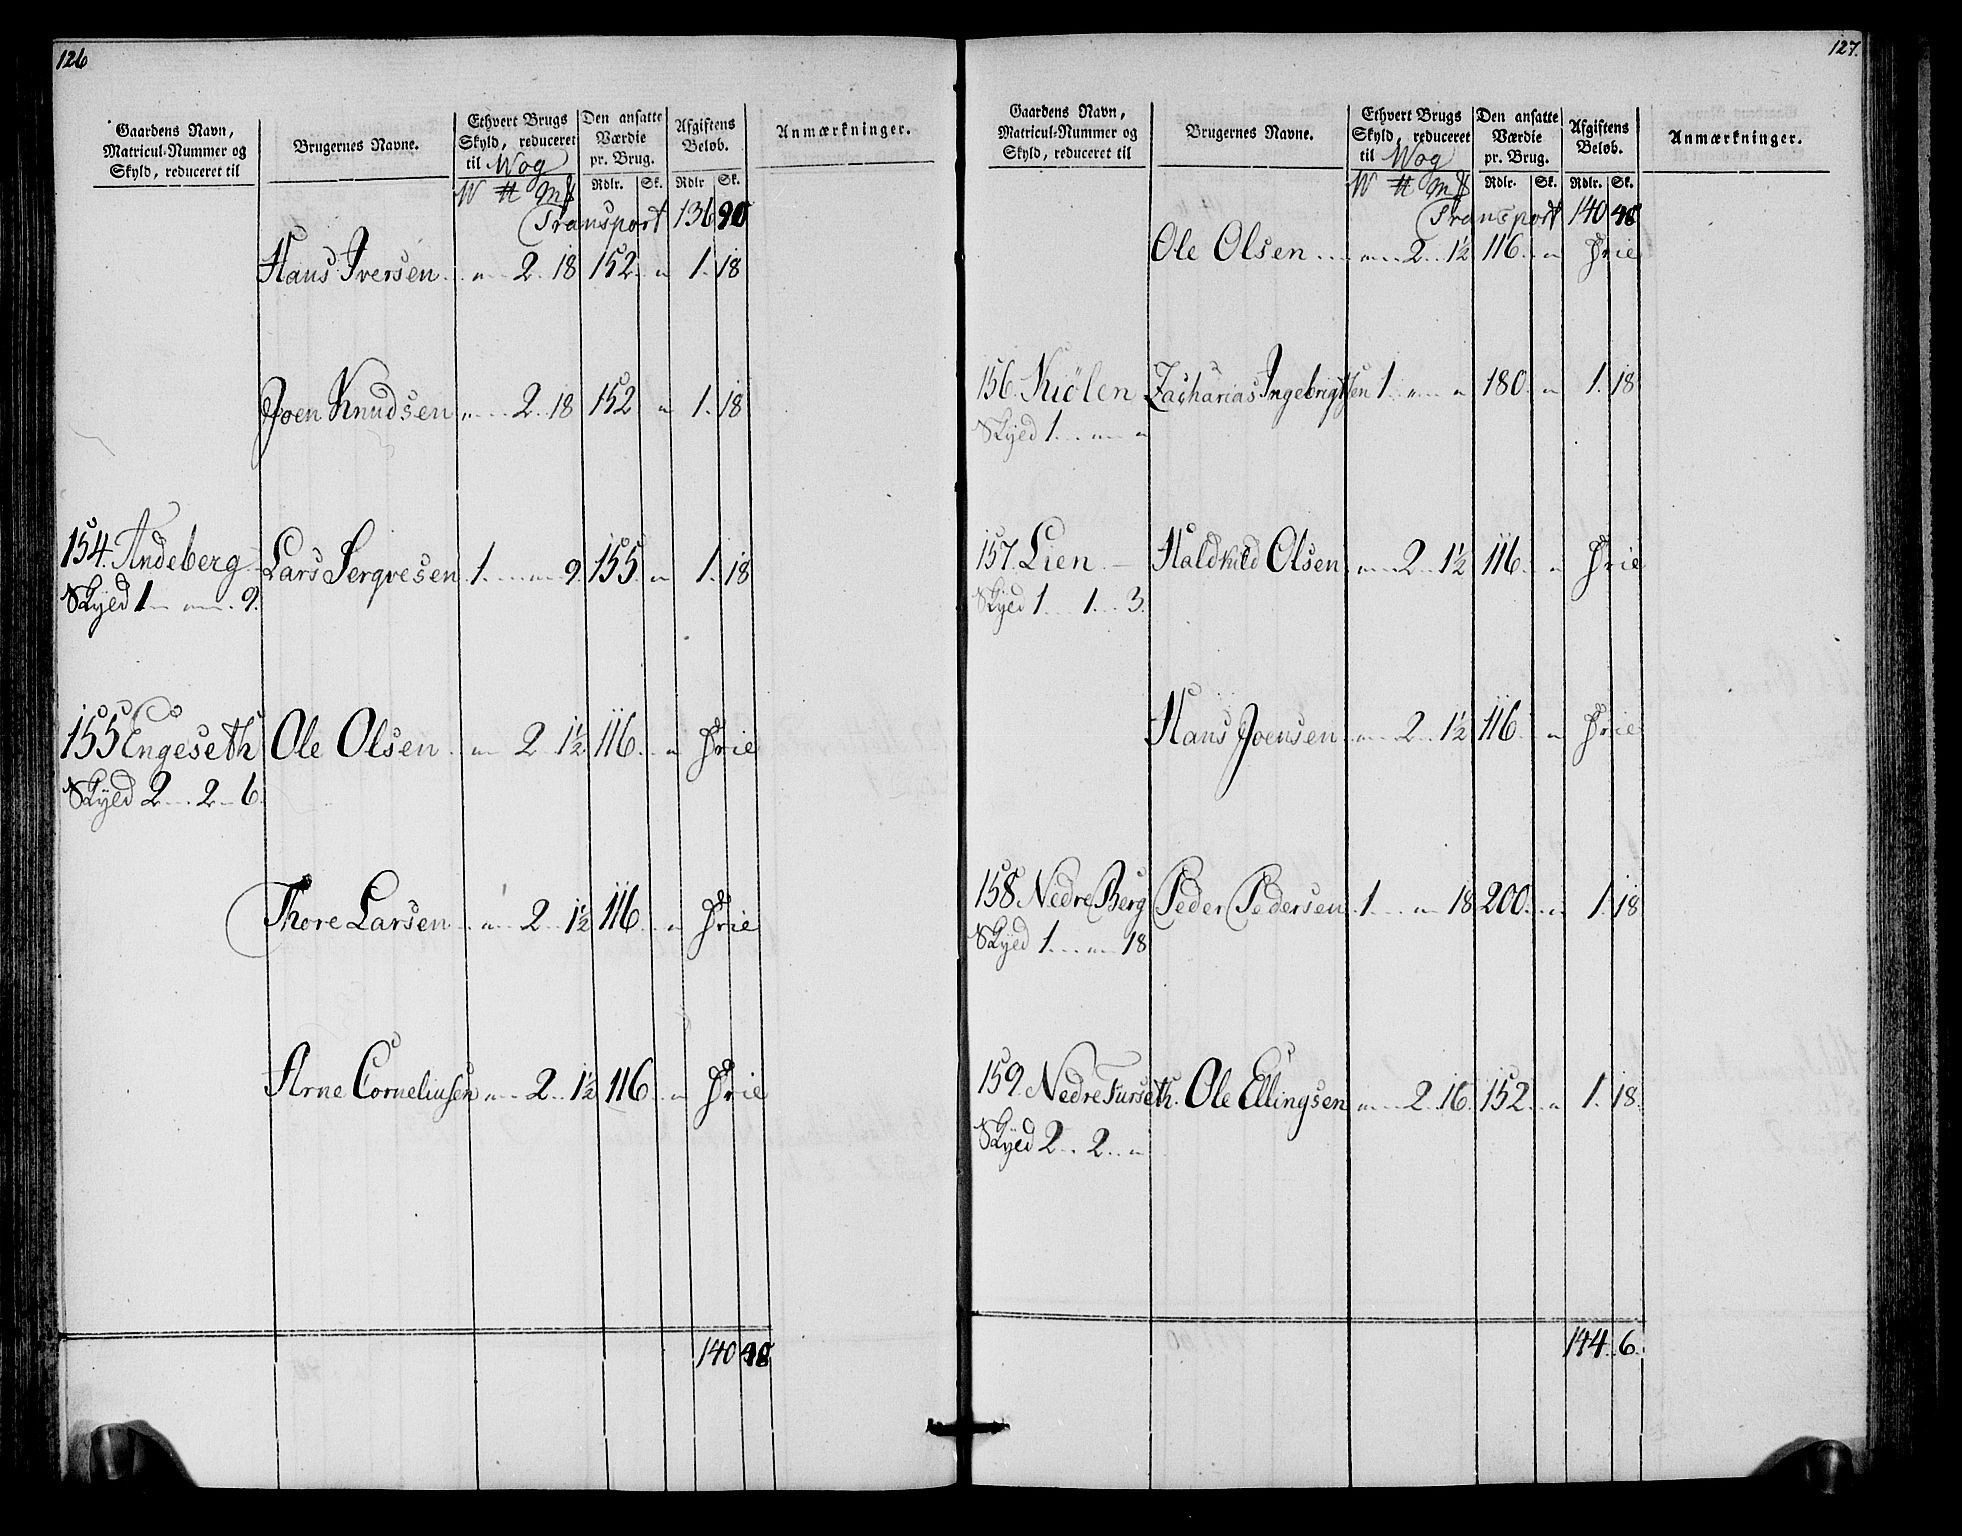 126
Gaardens Navn,
Matricul-Nummer og
Skyld, reduceret til
Brugernes Navne.
Ethvert Brugs
Skyld, reduceret
til Wog
W ℔ m$
Den ansatte
Værdie
pr. Brug.
Rdlr. Sk.
Afgiftens
Beløb.
Rdlr Sk.
Anmærkninger.
Transport 136 90
Hans Iversen . . " . 2 . 18 152 . " 1 . 18
Joen Knudsen " . . 2 . 18 152 " 1 . 18
154. Andeberg Lars Serqvesen . 1 . . . " . 9 . 155 . " 1 . 18
Skyld 1 " . 9.
155 Engeseth Ole Olsen . . " . 2 . 1½ 116 . " Frie
Skyld 2 . . 2 . 6.
Thore Larsen . . " . 2 . 1½ 116 . " Frie
Arne Corneliussen " . 2 . . 1½ 116 . " Frie
140 48
127.
Gaardens Navn,
Matricul-Nummer og
Skyld, reduceret til
Brugernes Navne.
Ethvert Brugs
Skyld, reduceret
til Wog
W ℔ m$
Den ansatte
Værdie
pr. Brug.
Rdlr. Sk.
Afgiftens
Beløb.
Rdlr. Sk.
Anmærkninger.
Transport 140 48
Ole Olsen . . . " . . 2 . . 1½ 116 . . " Frie
156. Kiölen Zacharias Ingebrigtsen 1 . " . . " 180 . . " 1 . 18
Skyld 1 . . . " . . "
157. Lien . Haldkild Olsen . " . . 2 . . 1½ 116 . " Frie
Skyld 1 . . 1 . . 3.
Hans Joensen . " . . 2 . . 1½ 116 . " Frie
158 Nedre Berg Peder Pedersen . 1 . . . " 18 200 . . " 1 . 18
Skyld 1 . . . " . 18
159. Nedre Furseth. Ole Ellingsen . " . . 2 . 16 . 152 . . " 1 . 18.
Skyld 2 . . 2 . . "
144 . 6.